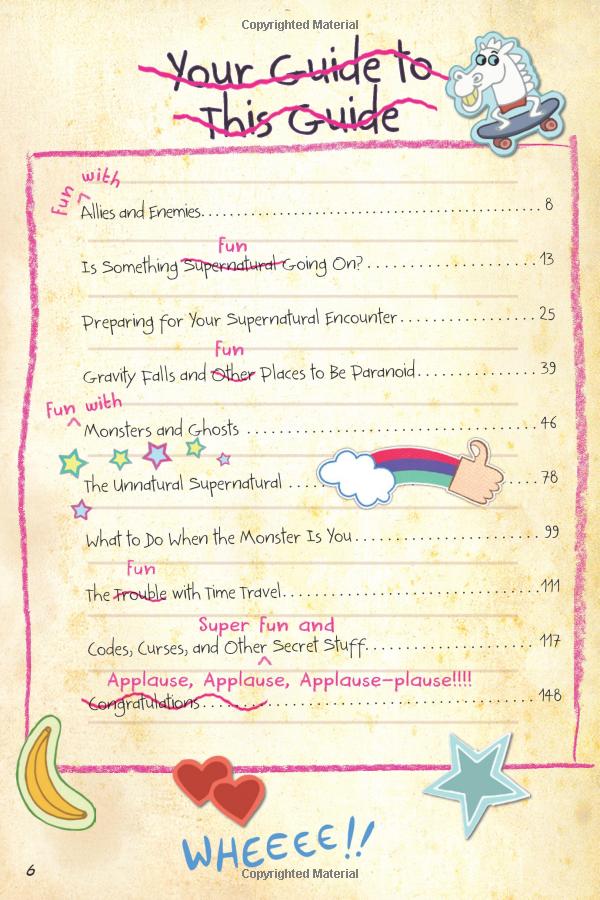 Copyrighted Material
Your Guide to
This Guide
Fun with
Allies and Enemies.......................................................8
Fun
Is Something Supernatural Going On?............................13
Preparing for Your Supernatural Encounter.......................25
Fun
Gravity Falls and Other Places to Be Paranoid....................39
Fun with
Monsters and Ghosts ..................................................46
The Unnatural Supernatural .........78
What to Do When the Monster Is You..............................99
Fun
The Trouble with Time Travel..........................................111
Super Fun and
Codes, Curses, and Other Secret Stuff............................117
Applause, Applause, Applause-plause!!!!
Congratulations.........................................................148
WHEEEE!!
6
Copyrighted Material